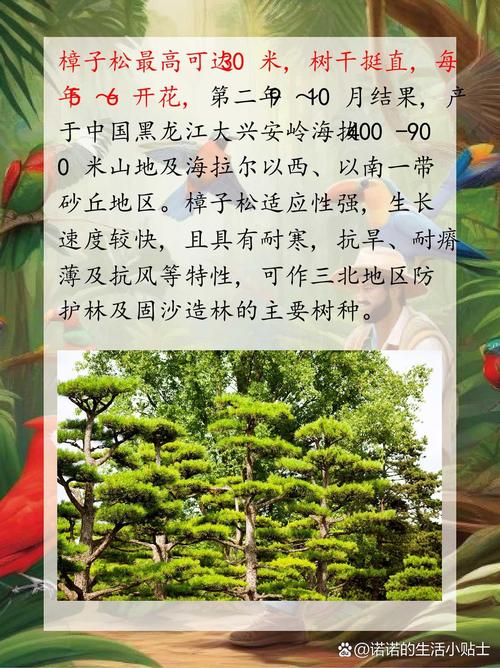 樟子松最高可达30 米，树干挺直，每
年 5 ~6 开花，第二年 9 ~10 月结果，产
于中国黑龙江大兴安岭海拔400 -90
0 米山地及海拉尔以西、以南一带
砂丘地区。樟子松适应性强，生长
速度较快，且具有耐寒，抗旱、耐瘠
薄及抗风等特性，可作三北地区防
护林及固沙造林的主要树种。
诺诺的生活小贴士